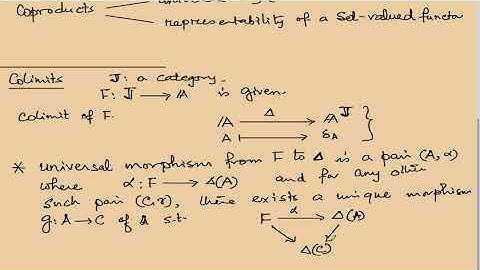 Coproducts
representability of a Set-valued functo
Colimits J: a category.
F: J → A is given.
Colimit of F.
A Δ A^J
A ↦ δ_A
* universal morphism from F to Δ is a pair (A, α)
where α: F → Δ(A) and for any other
such pair (C, γ), there exists a unique morphism
g: A → C of A s.t. F α Δ(A)
Δ(C)